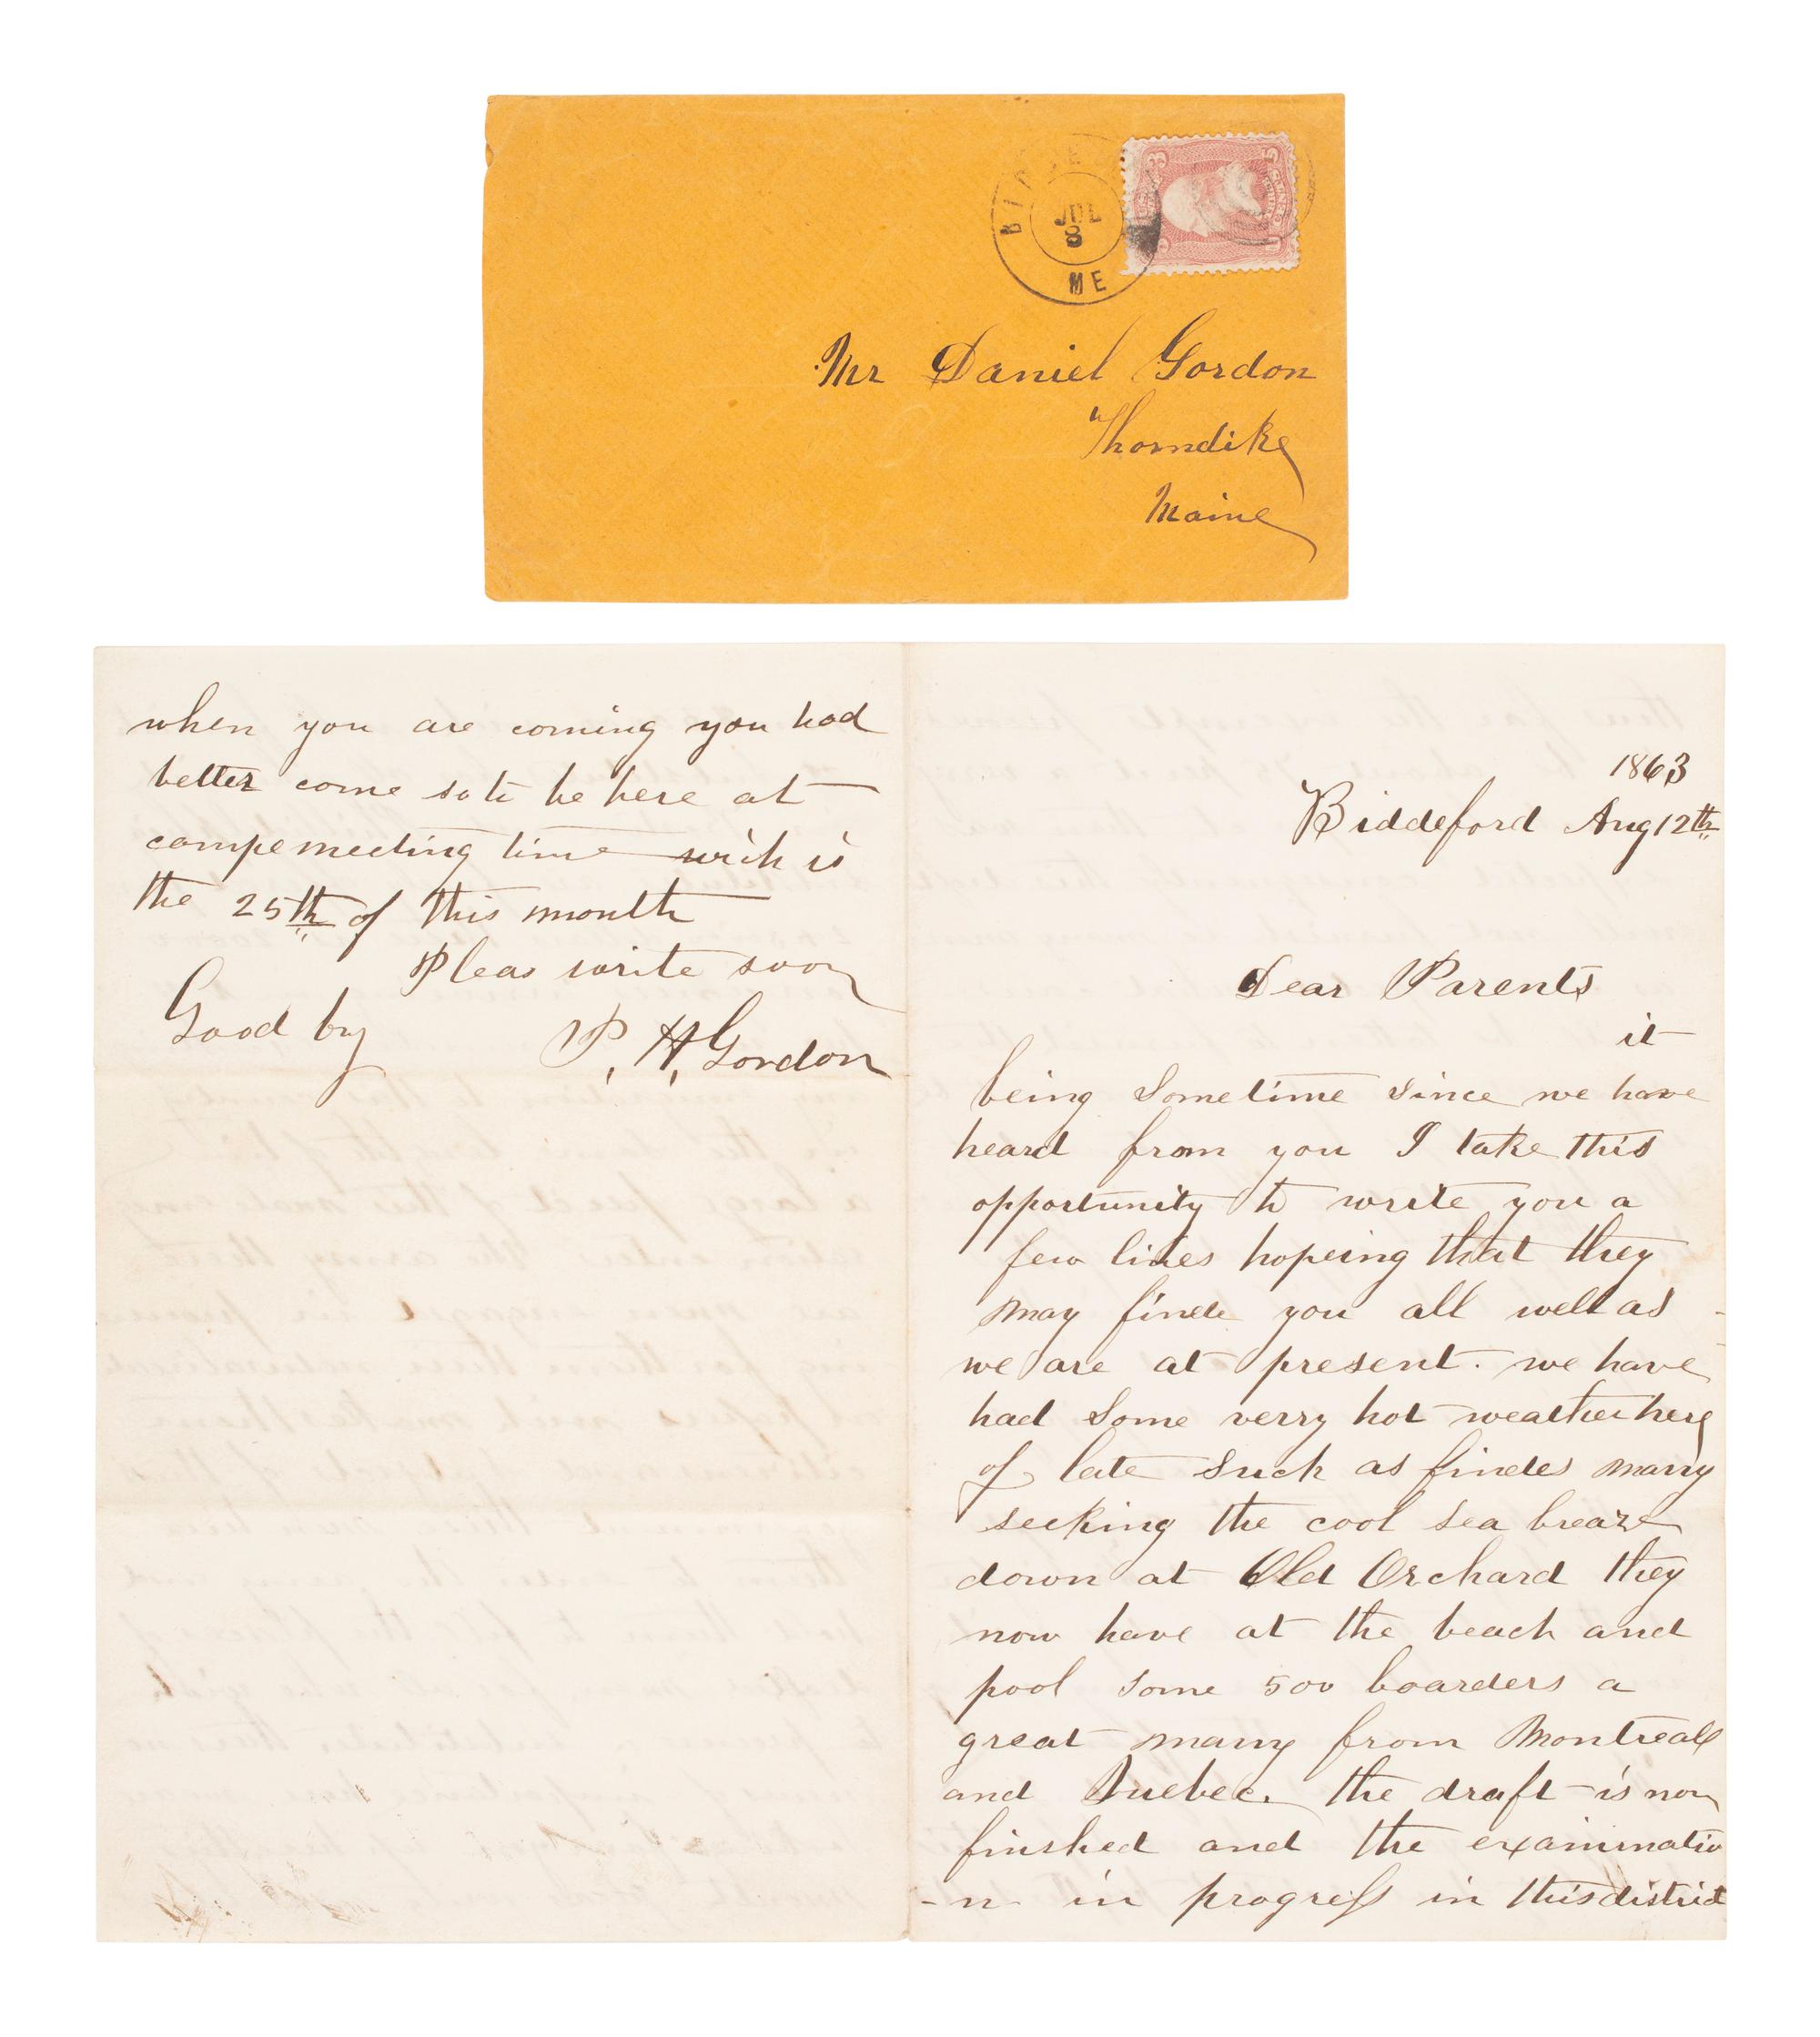 JUL
8
ME
Mr Daniel Gordon
Thorndike
Maine
1863
Biddeford Aug 12th
Dear Parents
it
being Sometime Since we have
heard from you I take this
opportunity to write you a
few lines hopeing that they
may finde you all well as
we are at present. we have
had Some verry hot weather here
of late Such as findes many
seeking the cool sea breaze
down at Old Orchard they
now have at the beach and
pool Some 500 boarders a
great many from Montreall
and Quebec. the draft is now
finshed and the examinatio
-n in progress in this district
when you are coming you had
better come so to be here at
campemeeting time wich is
the 25th of this month
Pleas write soon
Good by
P. H. Gordon